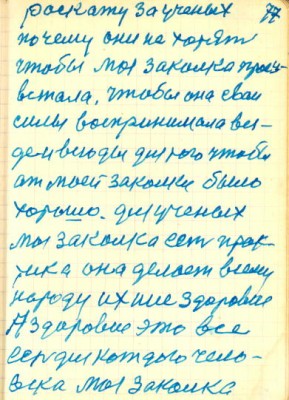 роскажу за ученых 77
почему они не хотят
чтобы моя закалка проц-
ветала, чтобы она свои
силы воспринимала вез-
де и всюду для того чтобы
от моей закалки было
хорошо. для ученых
моя закалка есть прак-
тика она делает всему
народу ихние здоровие
А здоровие это все
для каждого чело-
века моя закалка